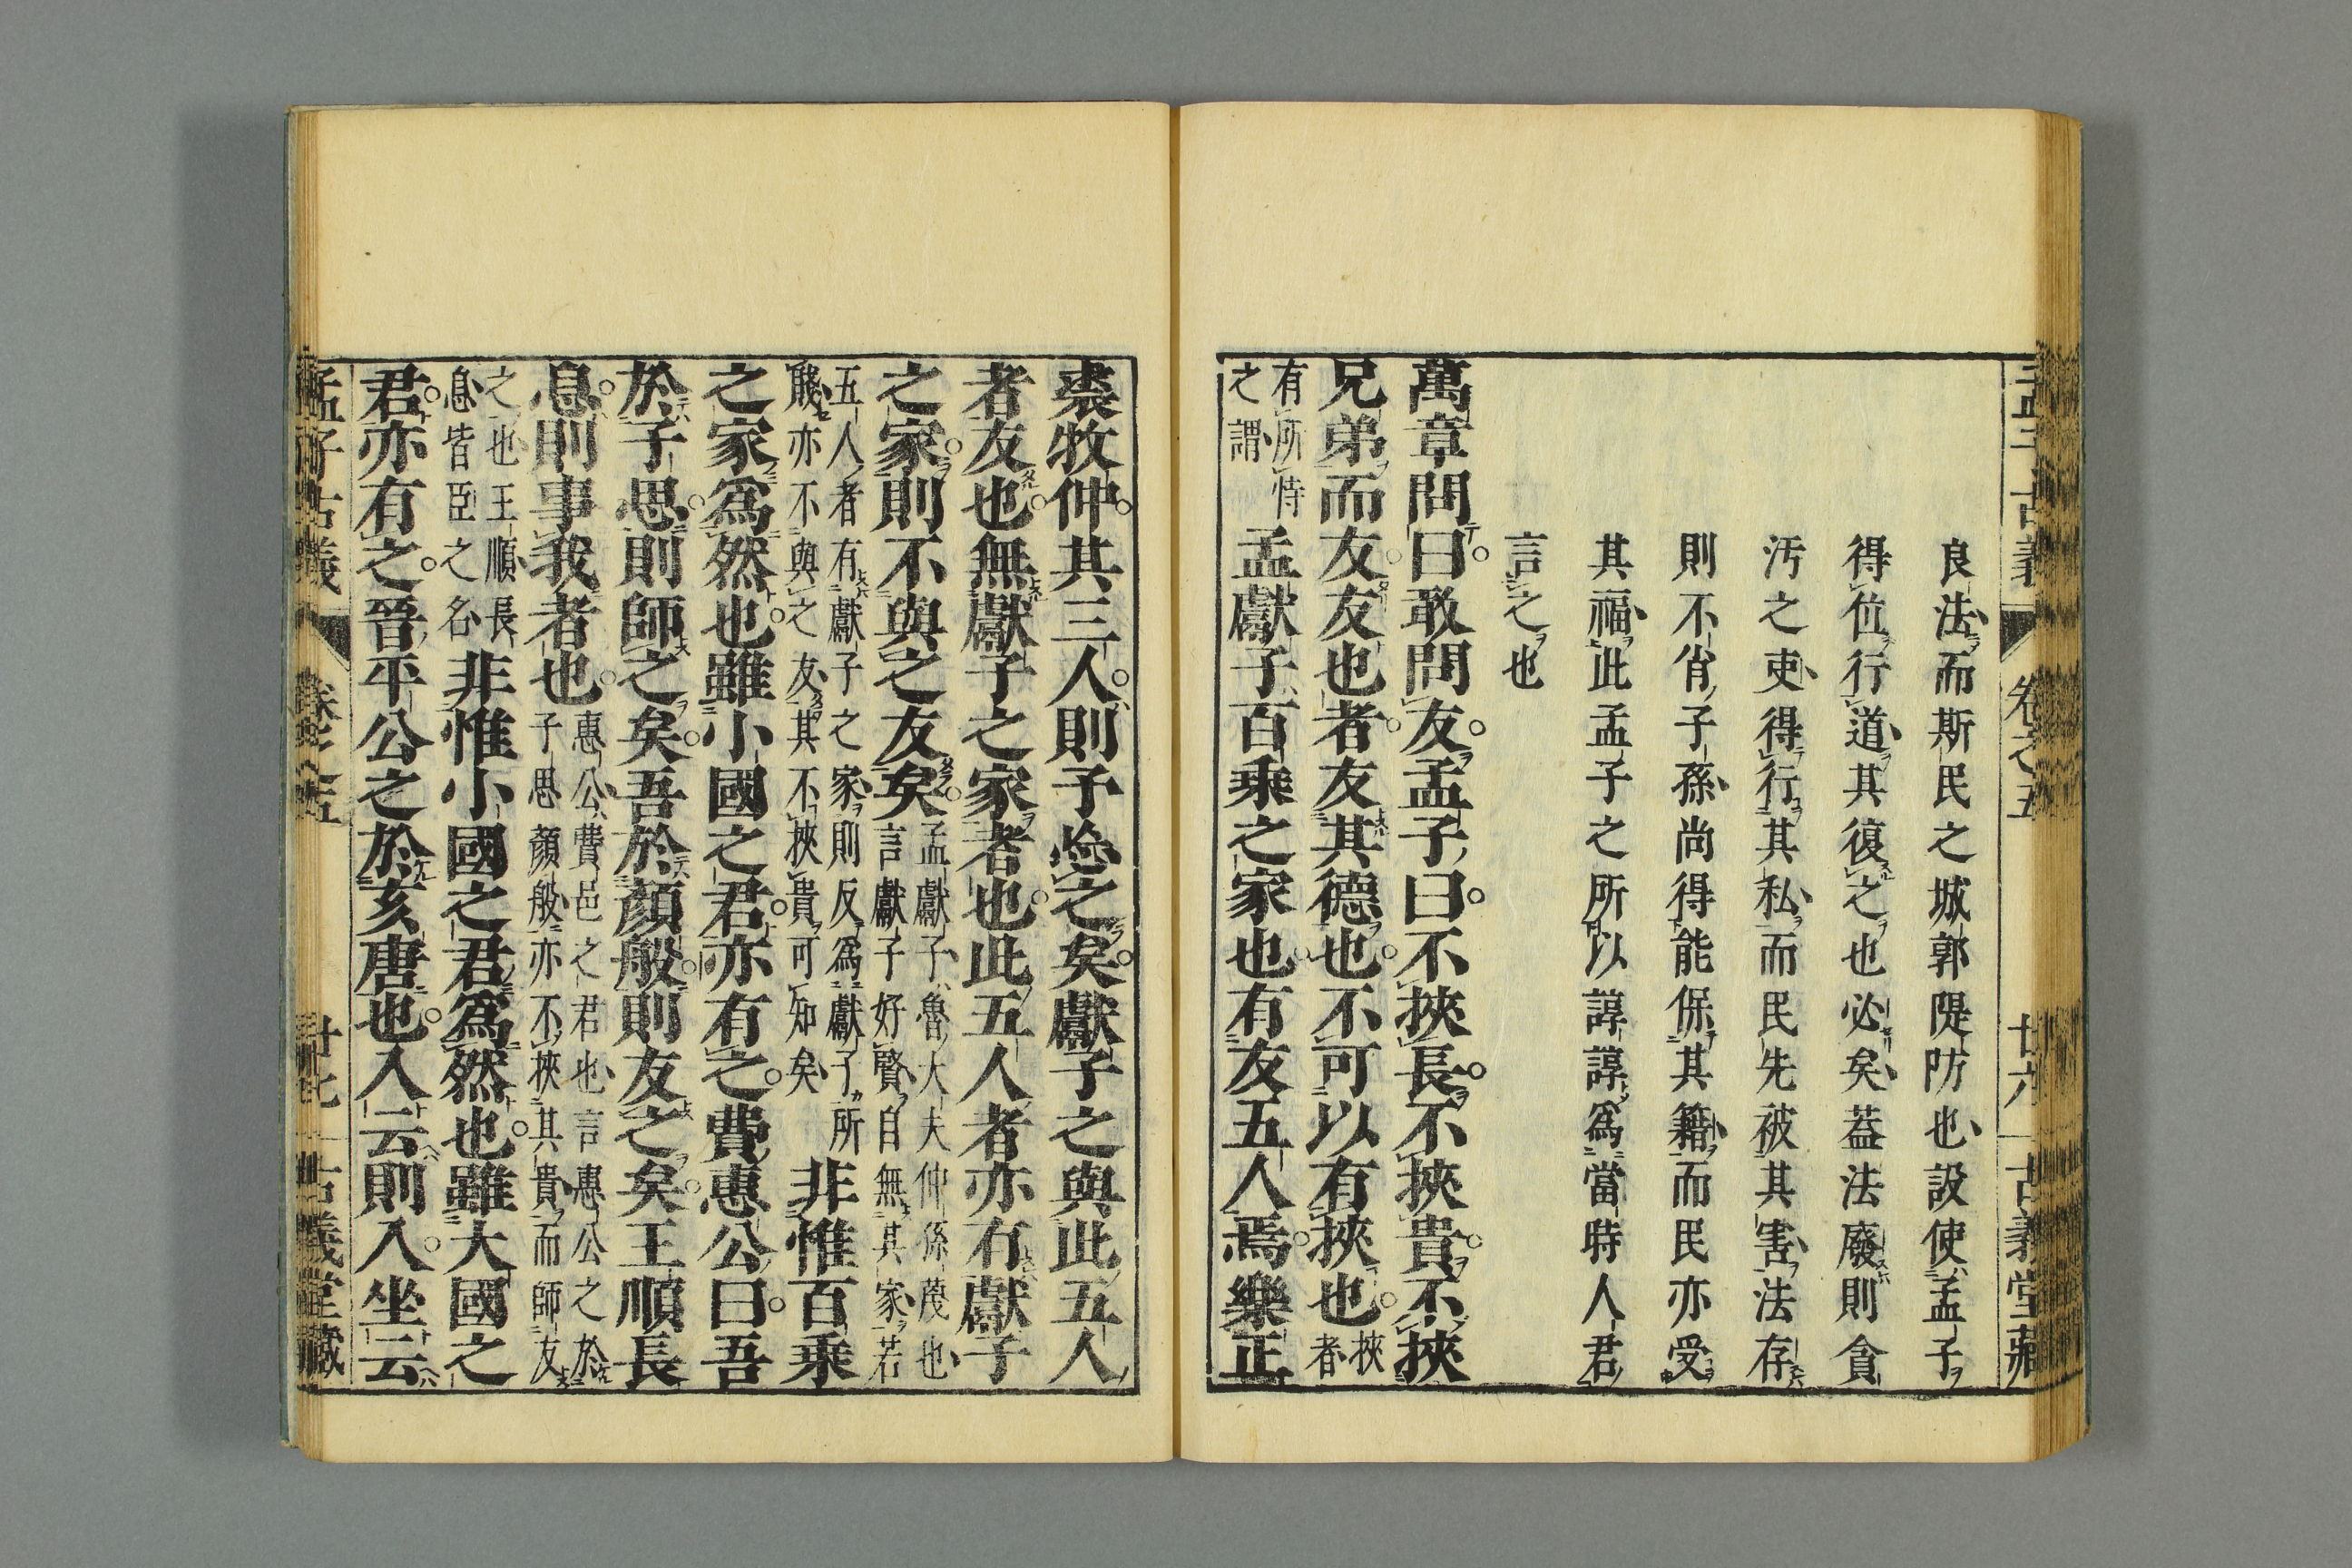 孟子古義 卷之五 廿六 古義堂藏
良法而斯民之城郭隄防也設使孟子
得位行道其復之也必矣蓋法廢則貪
汚之吏得行其私而民先被其害法存
則不肖子孫尚得能保其籍而民亦受
其福此孟子之所以諄諄爲當時人君
言之也
萬章問曰敢問友孟子曰不挾長不挾貴不挾
兄弟而友友也者友其德也不可以有挾也挾者
有所恃之謂孟獻子百乘之家也有友五人焉樂正
裘牧仲其三人則予忘之矣獻子之與此五人
者友也無獻子之家者也此五人者亦有獻子
之家則不與之友矣孟獻子魯大夫仲孫蔑也言獻子好賢自無其家若
五人者有獻子之家則反爲獻子所賤亦不與之友其不挾貴可知矣非惟百乘
之家爲然也雖小國之君亦有之費惠公曰吾
於子思則師之矣吾於顏般則友之矣王順長
息則事我者也惠公費邑之君也言惠公之於子思顏般亦不挾其貴而師友
之也王順長息皆臣之名非惟小國之君爲然也雖大國之
君亦有之晉平公之於亥唐也入云則入坐云
孟子古義 卷之五 廿七 古義堂藏